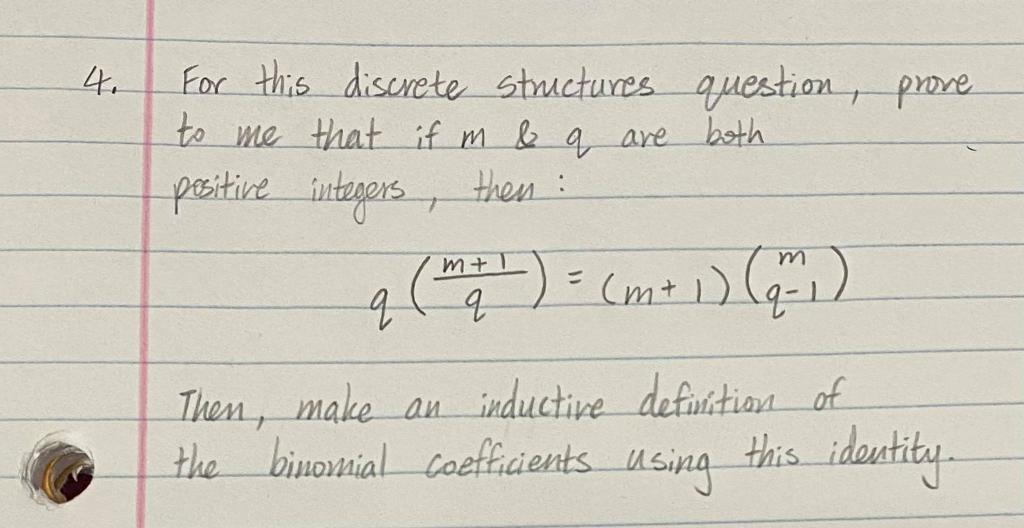 4. For this discrete structures question, prove
to me that if m & q are both
positive integers, then :
q ( \frac{m+1}{q} ) = (m+1) \binom{m}{q-1}
Then, make an inductive definition of
the binomial coefficients using this identity.